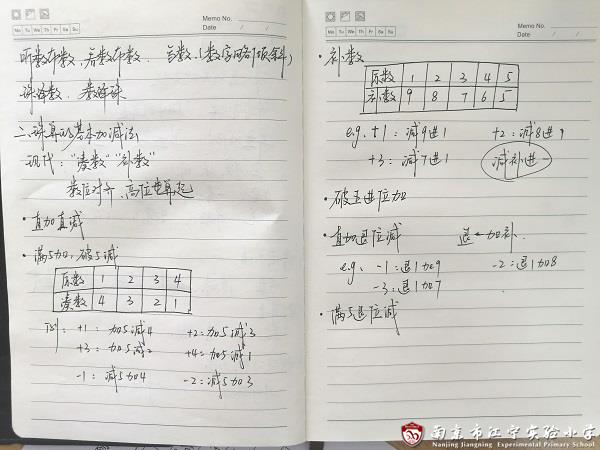 Memo No.
Mo Tu We Th Fr Sa Su
Date / /
听数布数、看数布数、
珠译数、数译珠
二、珠算的基本加减法
现代:"凑数""补数"
数位对齐,高位算起
·直加直减
·满5加,破5减
原数 1 2 3 4
凑数 4 3 2 1
+1:加5减4 +2:加5减3
+3:加5减2 +4:加5减1
-1:减5加4 -2:减5加3
Memo No.
Mo Tu We Th Fr Sa Su
Date / /
·补数
原数 1 2 3 4 5
补数 9 8 7 6 5
e.g. +1:减9进1 +2:减8进1
+3:减7进1 减补进一
·破五进位加
·直加退位减 退一加补
e.g. -1:退1加9 -2:退1加8
-3:退1加7
·满5退位减
南京市江宁实验小学
Nanjing Jiangning Experimental Primary School